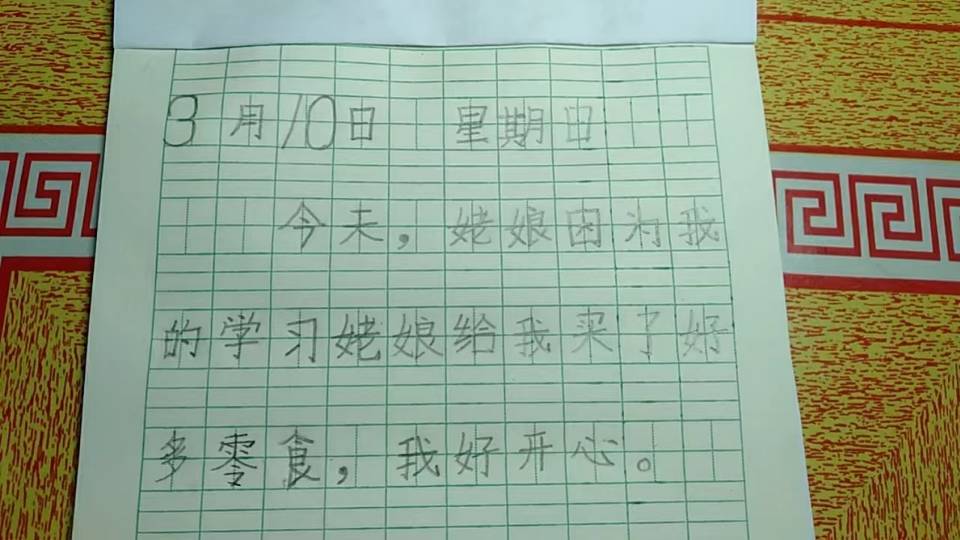 3月10日 星期日
今天，姥娘因为我
的学习姥娘给我买了好
多零食，我好开心。